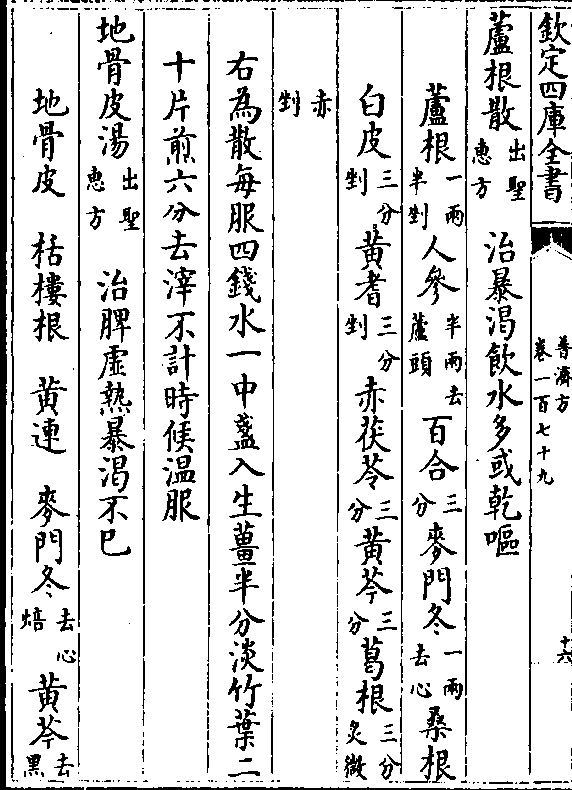 欽定四庫全書
普濟方
卷一百七十九
十六
蘆根散出聖惠方 治暴渴飲水多或乾嘔
蘆根一兩半剉 人參半兩去蘆頭 百合三分 麥門冬一兩去心 桑根
白皮三分剉 黃耆三分剉 赤茯苓三分 黃芩三分 葛根三分炙微
赤剉
右為散每服四錢水一中盞入生薑半分淡竹葉二
十片煎六分去滓不計時候温服
地骨皮湯出聖惠方 治脾虛熱暴渴不巳
地骨皮 栝樓根 黃連 麥門冬去心焙 黃芩去黑